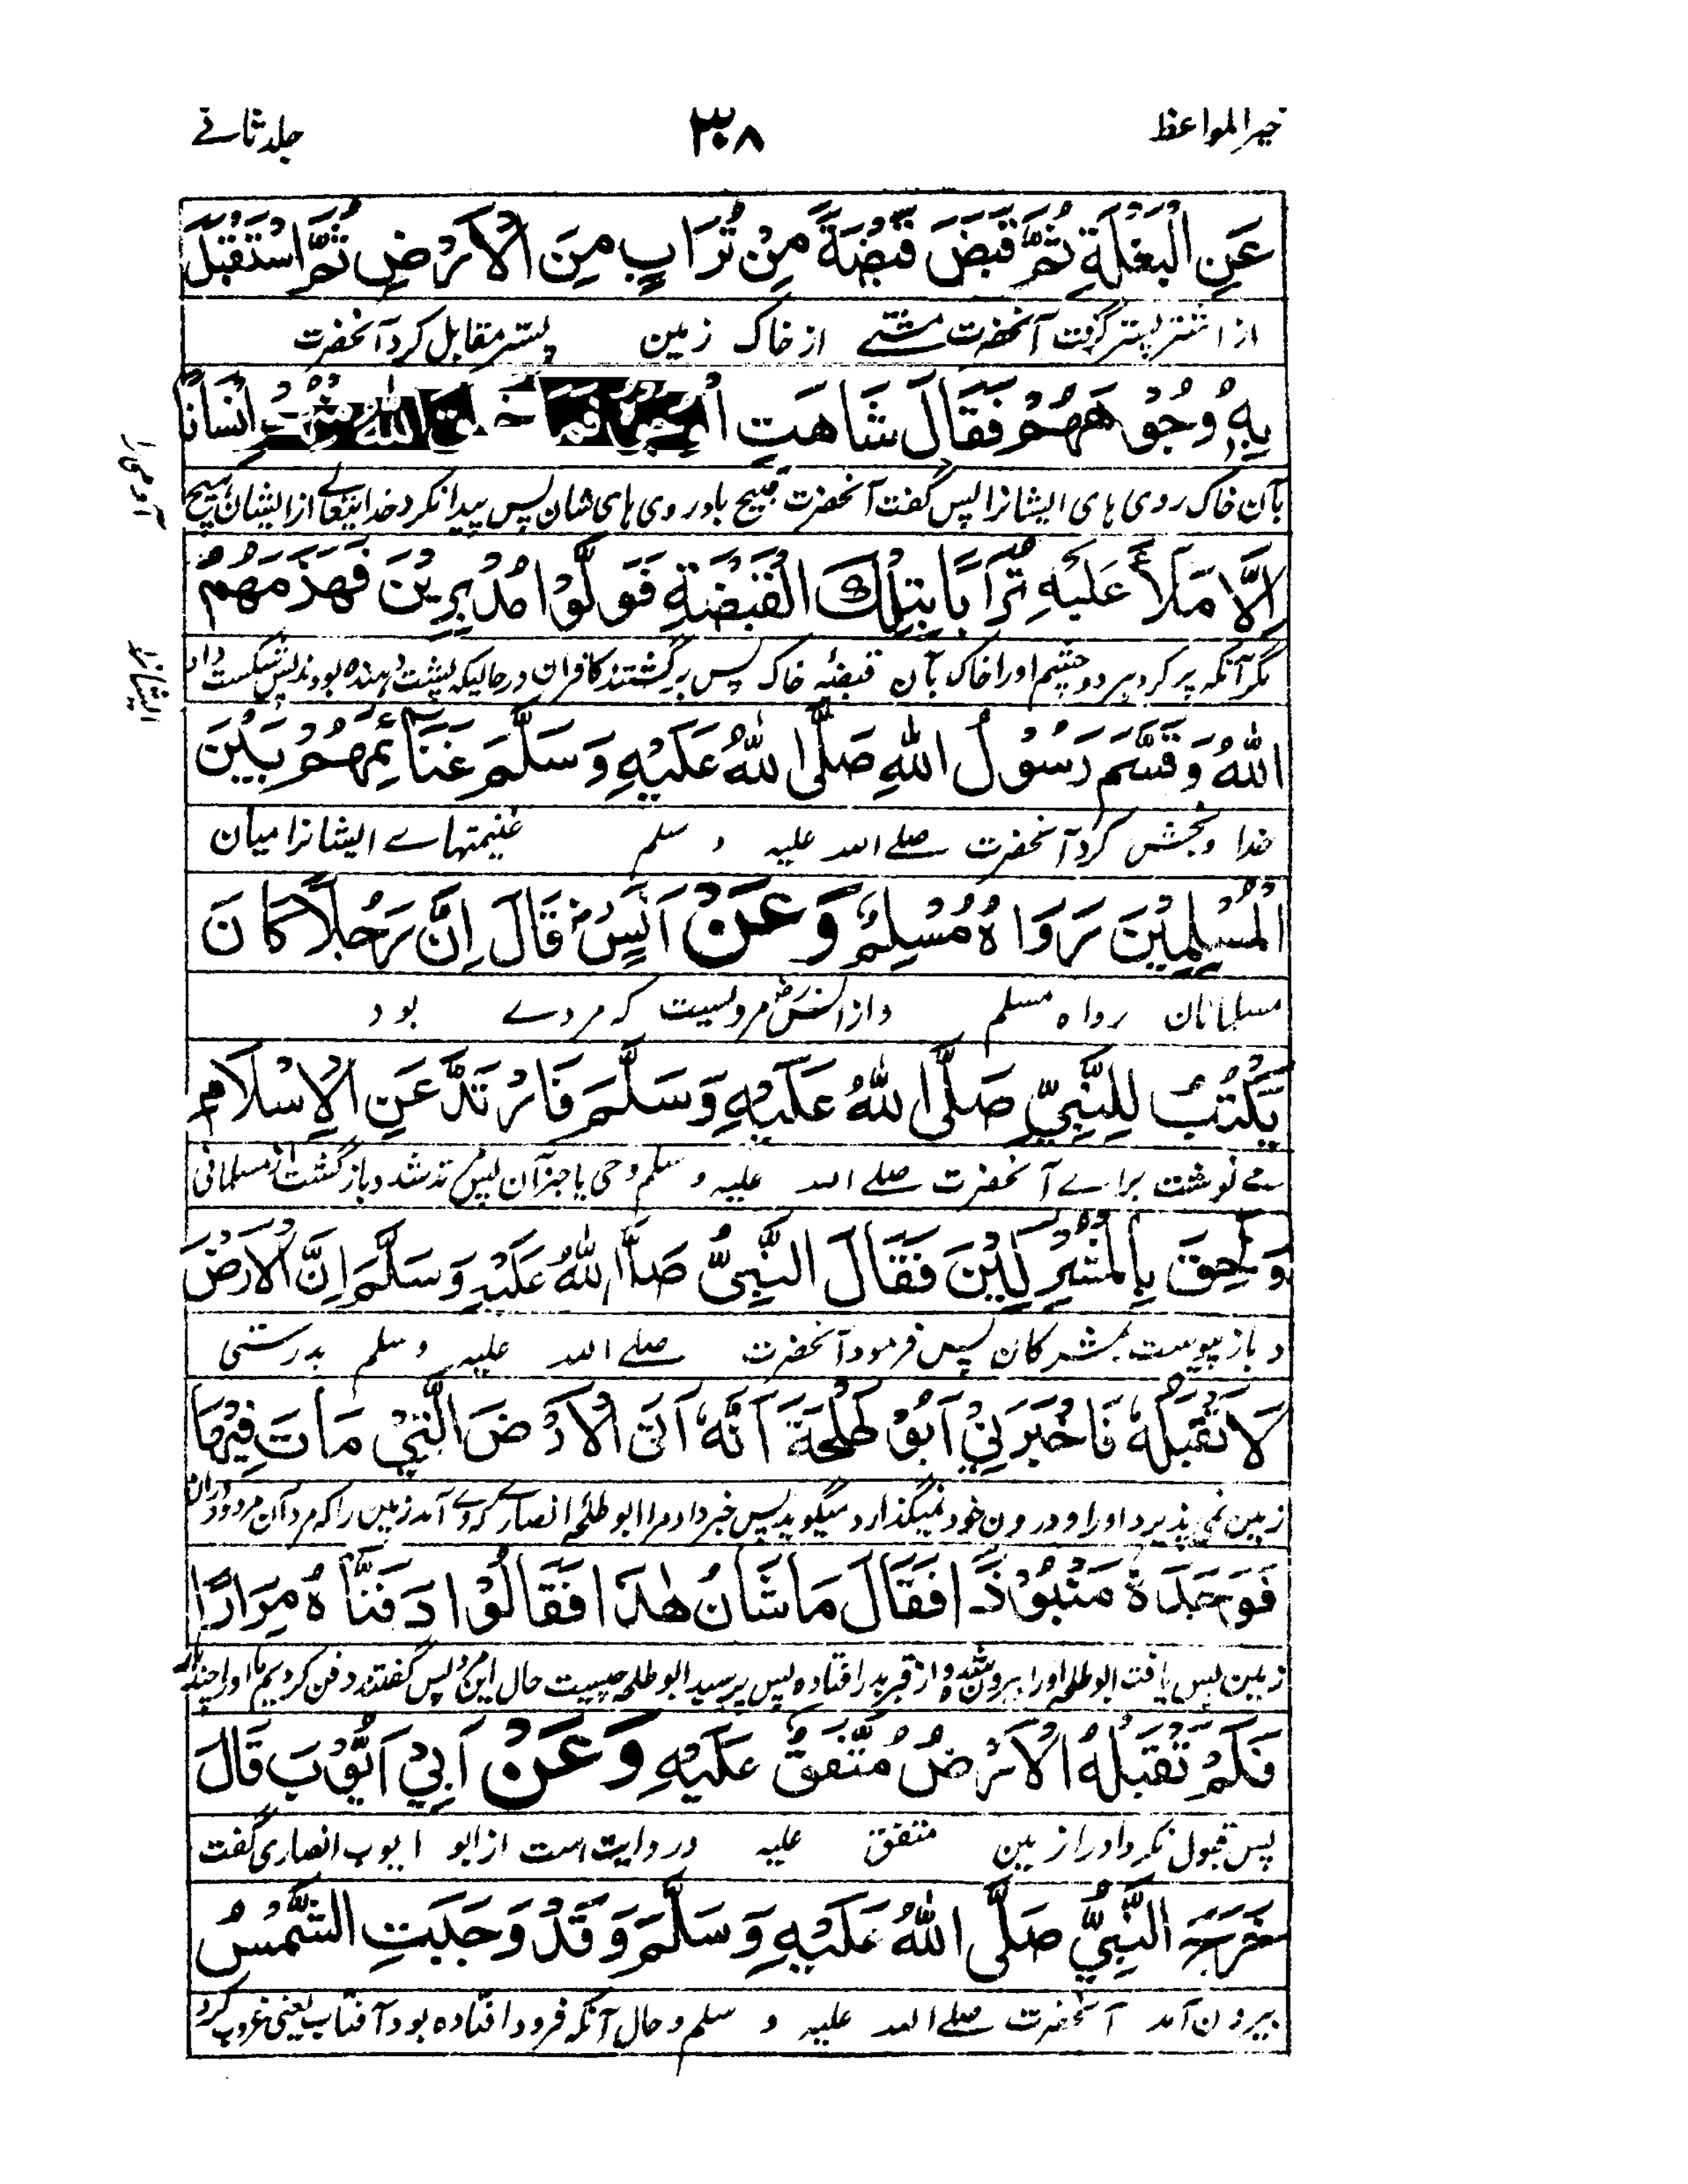 خیرالمواعظ ۳۰۸ جلد ثانے
عَنِ الْبَغْلَةِ ثُمَّ قَبَضَ قَبْضَةً مِنْ تُرَابٍ مِنَ الْاَرْضِ ثُمَّ اسْتَقْبَلَ
از اشتر پستر گرفت آنحضرت مشتے از خاک زمین پستر مقابل کرد آنحضرت
بِهٖ وُجُوْهَهُمْ فَقَالَ شَاهَتِ الْوُجُوْهُ فَمَا خَلَقَ اللهُ مِنْهُمْ اِنْسَانًا
بآن خاک روی ہای ایشانرا پس گفت آنحضرت قبیح باد روی ہای شان پس پیدا نکرد خدایتعالے از ایشان ہیچ
آدمی را
اِلَّا مَلَأَ عَلَيْهِ تُرَابًا بِتِلْكَ الْقَبْضَةِ فَوَلَّوْا مُدْبِرِيْنَ فَهَزَمَهُمُ
مگر آنکہ پر کرد ہر دو چشم اورا خاک بآن قبضۂ خاک پس برگشتند کافران درحالیکہ پشت دہندہ بودند پس شکست داد
ایشانرا
اللهُ وَقَسَّمَ رَسُوْلُ اللهِ صَلَّى اللهُ عَلَيْهِ وَسَلَّمَ غَنَائِمَهُمْ بَيْنَ
خدا و بخش کرد آنحضرت صلے اللہ علیہ و سلم غنیمتہاے ایشانرا میان
الْمُسْلِمِيْنَ رَوَاهُ مُسْلِمٌ وَعَنْ اَنَسٍ قَالَ اِنَّ رَجُلًا كَانَ
مسلمانان رواہ مسلم و از انس مرویست کہ مردے بود
يَكْتُبُ لِلنَّبِيِّ صَلَّى اللهُ عَلَيْهِ وَسَلَّمَ فَارْتَدَّ عَنِ الْاِسْلَامِ
مے نوشت براے آنحضرت صلے اللہ علیہ و سلم وحی یا جز آن پس مرتد شد و بازگشت از مسلمانی
وَلَحِقَ بِالْمُشْرِكِيْنَ فَقَالَ النَّبِيُّ صَلَّى اللهُ عَلَيْهِ وَسَلَّمَ اِنَّ الْاَرْضَ
و باز پیوست بمشرکان پس فرمود آنحضرت صلے اللہ علیہ و سلم بدرستی
لَا تَقْبَلُهٗ فَاخْبَرَنِيْ اَبُوْ طَلْحَةَ اَنَّهٗ اَتَى الْاَرْضَ الَّتِيْ مَاتَ فِيْهَا
زمین نمی پذیرد اورا و درون خود نمیگذارد میگوید پس خبر داد مرا ابو طلحہ انصارے کہ وے آمد زمین را کہ مرد آن مرد دران
فَوَجَدَهٗ مَنْبُوْذًا فَقَالَ مَا شَانُ هٰذَا فَقَالُوْا دَفَنَّاهُ مِرَارًا
زمین پس یافت ابو طلحہ اورا بیرون از قبر بدر افتادہ پس پرسید ابو طلحہ چیست حال این مرد پس گفتند دفن کردیم ما اورا چند بار
فَلَمْ تَقْبَلْهُ الْاَرْضُ مُتَّفَقٌ عَلَيْهِ وَعَنْ اَبِيْ اَيُّوْبَ قَالَ
پس قبول نکرد اورا زمین متفق علیہ و روایت است از ابو ایوب انصاری گفت
خَرَجَ النَّبِيُّ صَلَّى اللهُ عَلَيْهِ وَسَلَّمَ وَقَدْ وَجَبَتِ الشَّمْسُ
بیرون آمد آنحضرت صلے اللہ علیہ و سلم و حال آنکہ فرود افتادہ بود آفتاب یعنی غروب کرد